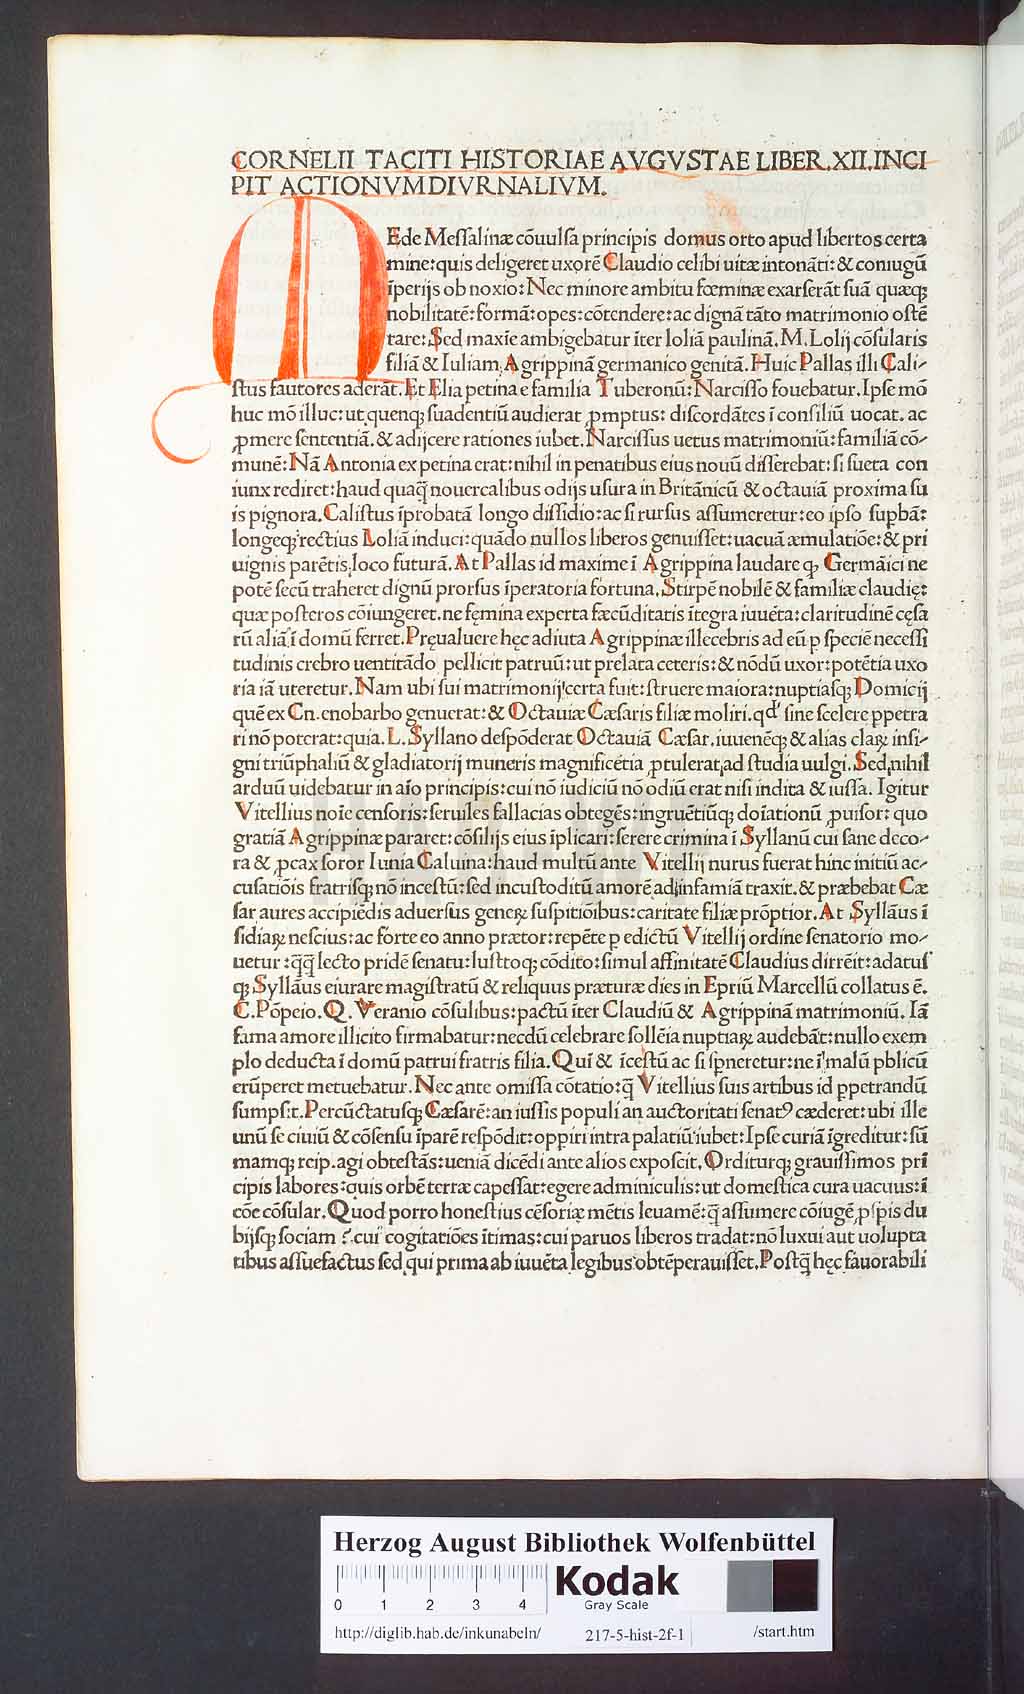 CORNELII TACITI HISTORIAE AVGVSTAE LIBER.XII.INCI
PIT ACTIONVM DIVRNALIVM.
Ede Messalinæ cōuulsa principis domus orto apud libertos certa
mine: quis deligeret uxorē Claudio celibi uitæ intonāti: & coniugū
īperijs ob noxio: Nec minore ambitu fœminæ exarserāt suā quæqꝫ
nobilitatē: formā: opes: cōtendere: ac dignā tāto matrimonio ostē
tare: Sed maxīe ambigebatur īter loliā paulinā. M. Lolij cōsularis
filiā & Iuliam. Agrippinā germanico genitā. Huic Pallas illi Cali-
stus fautores aderāt. Et Elia petina e familia Tuberonū: Narcisso fouebatur. Ipse mō
huc mō illuc: ut quenqꝫ suadentiū audierat ꝓmptus: discordātes ī consiliū uocat. ac
ꝓmere sententiā. & adijcere rationes iubet. Narcissus uetus matrimoniū: familiā cō-
munē: Nā Antonia ex petina erat: nihil in penatibus eius nouū disserebat: si sueta con
iunx rediret: haud quaq̄ nouercalibus odijs usura in Britānicū & octauiā proxima su
is pignora. Calistus īprobatā longo dissidio: ac si rursus assumeretur: eo ipso supbā:
longeqꝫ rectius Loliā induci: quādo nullos liberos genuisset: uacuā æmulatiōe: & pri
uignis parētis loco futurā. At Pallas id maxime ī Agrippina laudare qꝫ Germāici ne
potē secū traheret dignū prorsus īperatoria fortuna. Stirpē nobilē & familiæ claudię:
quæ posteros cōiungeret. ne fęmina experta fæcūditatis ītegra iuuēta: claritudinē cęsa
rū aliā ī domū ferret. Pręualuere hęc adiuta Agrippinæ illecebris ad eū p speciē necessi
tudinis crebro uentitādo pellicit patruū: ut prelata ceteris: & nōdū uxor: potētia uxo
ria iā uteretur. Nam ubi sui matrimonij certa fuit: struere maiora: nuptiasqꝫ Domicij
quē ex Cn. enobarbo genuerat: & Octauiæ Cæsaris filiæ moliri. qd' sine scelere ppetra
ri nō poterat: quia. L. Syllano despōderat Octauiā Cæsar. iuuenēqꝫ & alias claꝝ insi-
gni triūphaliū & gladiatorij muneris magnificētia ꝓtulerat ad studia uulgi. Sed nihil
arduū uidebatur in aīo principis: cui nō iudiciū nō odiū erat nisi indita & iussa. Igitur
Vitellius noīe censoris: seruiles fallacias obtegēs: ingruētiūqꝫ doīationū ꝓuisor: quo
gratiā Agrippinæ pararet: cōsilijs eius īplicari: serere crimina ī Syllanū cui sane deco-
ra & ꝓcax soror Iunia Caluina: haud multū ante Vitellij nurus fuerat hinc initiū ac-
cusatiōis fratrisqꝫ nō incestū: sed incustoditū amorē ad infamiā traxit. & præbebat Cæ
sar aures accipiēdis aduersus geneꝝ suspitiōibus: caritate filiæ prōptior. At Syllāus ī
sidiaꝝ nescius: ac forte eo anno prætor: repēte p edictū Vitellij ordine senatorio mo-
uetur: q̄q̄ lecto pridē senatu: lustroqꝫ cōdito: simul affinitatē Claudius dirrēit: adatus
qꝫ Syllāus eiurare magistratū & reliquus præturæ dies in Epriū Marcellū collatus ē.
C. Pōpeio. Q. Veranio cōsulibus: pactū īter Claudiū & Agrippinā matrimoniū. Iā
fama amore illicito firmabatur: necdū celebrare sollēia nuptiaꝝ audebāt: nullo exem
plo deducta ī domū patrui fratris filia. Quī & īcestū ac si spneretur: ne ī malū pblicū
erūperet metuebatur. Nec ante omissa cōtatio: q̄ Vitellius suis artibus id ppetrandū
sumpsit. Percūctatusqꝫ Cæsarē: an iussis populi an auctoritati senatꝰ cæderet: ubi ille
unū se ciuiū & cōsensu īparē respōdit: oppiri intra palatiū iubet: Ipse curiā īgreditur: sū
mamqꝫ reip. agi obtestās: ueniā dicēdi ante alios exposcit. Orditurqꝫ grauissimos pri
cipis labores: quis orbē terræ capessat: egere adminiculis: ut domestica cura uacuus: ī
cōe cōsular. Quod porro honestius cēsoriæ mētis leuamē: q̄ assumere cōiugē ꝓspis du
bijsqꝫ sociam? cui cogitatiōes ītimas: cui paruos liberos tradat: nō luxui aut uolupta
tibus assuefactus sed qui prima ab iuuēta legibus obtēperauisset. Postq̄ hęc fauorabili
HAB-WF
Herzog August Bibliothek Wolfenbüttel
0 1 2 3 4
Kodak
Gray Scale
http://diglib.hab.de/inkunabeln/ 217-5-hist-2f-1 /start.htm